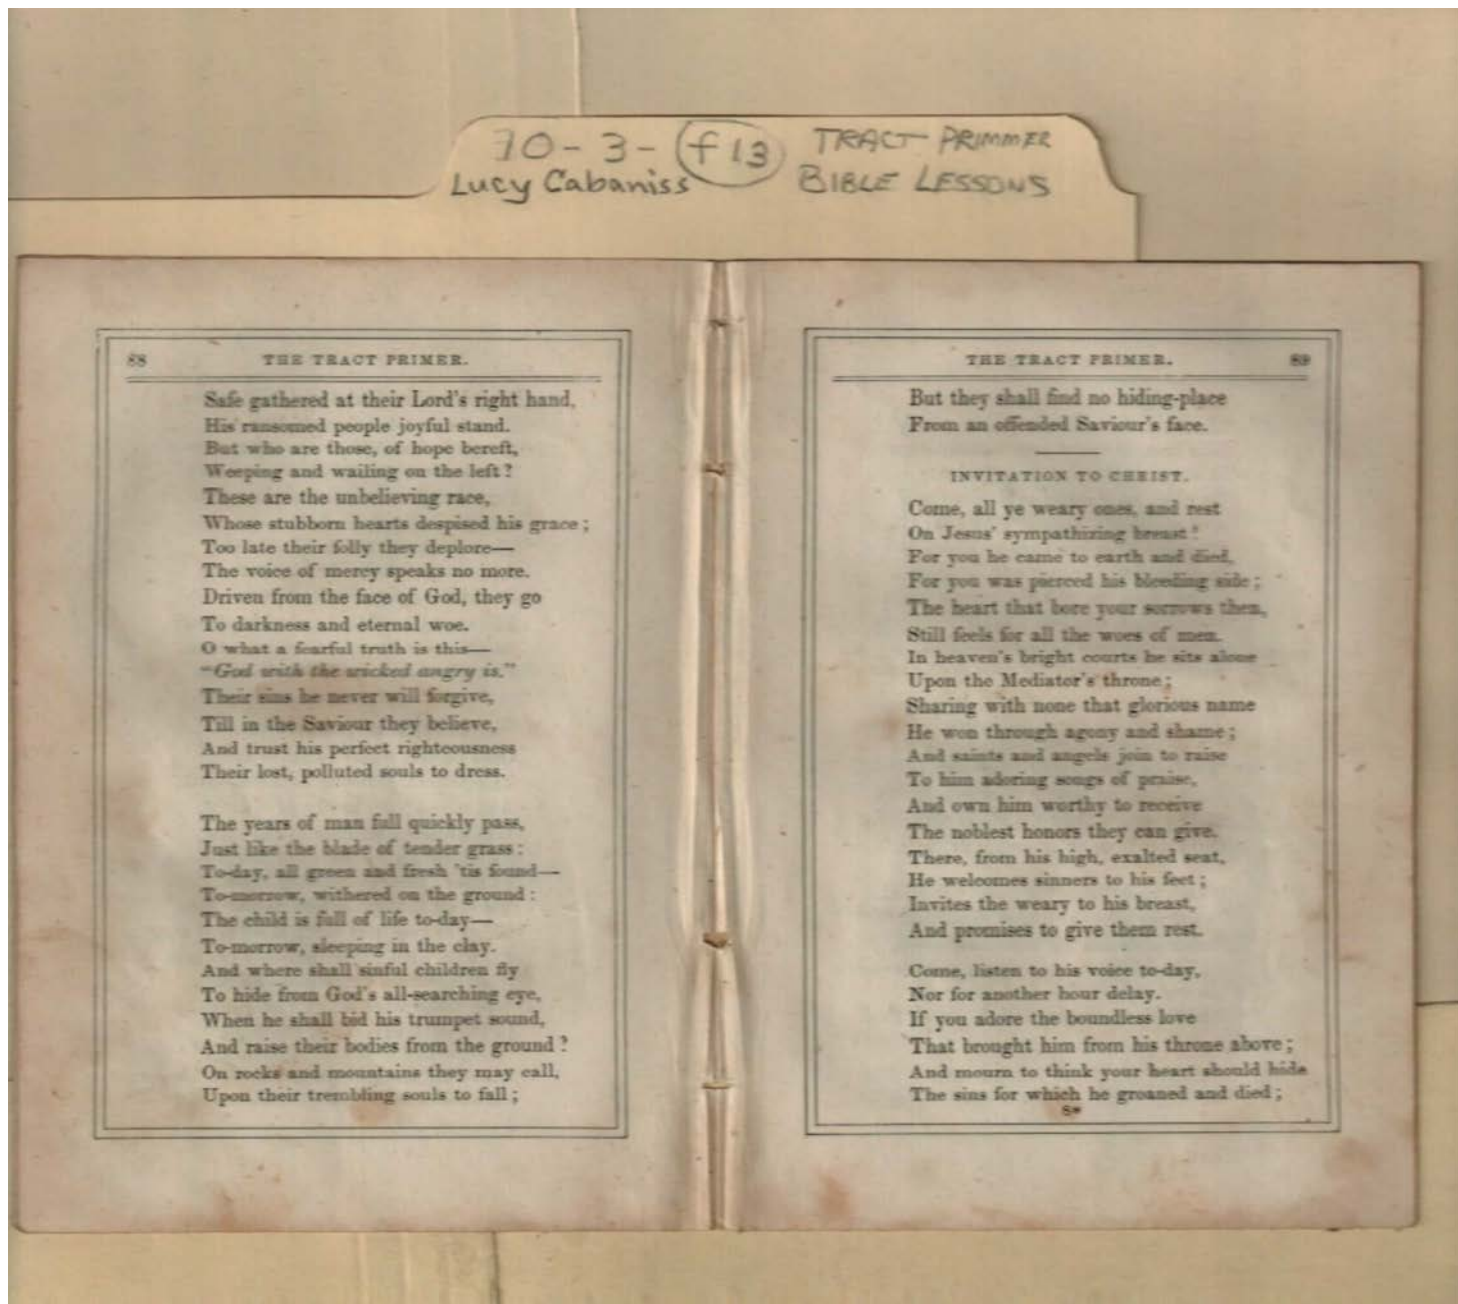 70-3-f13 TRACT PRIMMER
Lucy Cabaniss BIBLE LESSONS
88 THE TRACT PRIMER.
Safe gathered at their Lord's right hand,
His ransomed people joyful stand.
But who are those, of hope bereft,
Weeping and wailing on the left?
These are the unbelieving race,
Whose stubborn hearts despised his grace;
Too late their folly they deplore—
The voice of mercy speaks no more.
Driven from the face of God, they go
To darkness and eternal woe.
O what a fearful truth is this—
"God with the wicked angry is."
Their sins he never will forgive,
Till in the Saviour they believe,
And trust his perfect righteousness
Their lost, polluted souls to dress.
The years of man full quickly pass,
Just like the blade of tender grass:
To-day, all green and fresh 'tis found—
To-morrow, withered on the ground:
The child is full of life to-day—
To-morrow, sleeping in the clay.
And where shall sinful children fly
To hide from God's all-searching eye,
When he shall bid his trumpet sound,
And raise their bodies from the ground?
On rocks and mountains they may call,
Upon their trembling souls to fall;
THE TRACT PRIMER. 89
But they shall find no hiding-place
From an offended Saviour's face.
INVITATION TO CHRIST.
Come, all ye weary ones, and rest
On Jesus' sympathizing breast!
For you he came to earth and died,
For you was pierced his bleeding side;
The heart that bore your sorrows then,
Still feels for all the woes of men.
In heaven's bright courts he sits alone
Upon the Mediator's throne;
Sharing with none that glorious name
He won through agony and shame;
And saints and angels join to raise
To him adoring songs of praise,
And own him worthy to receive
The noblest honors they can give.
There, from his high, exalted seat,
He welcomes sinners to his feet;
Invites the weary to his breast,
And promises to give them rest.
Come, listen to his voice to-day,
Nor for another hour delay.
If you adore the boundless love
That brought him from his throne above;
And mourn to think your heart should hide
The sins for which he groaned and died;
8*